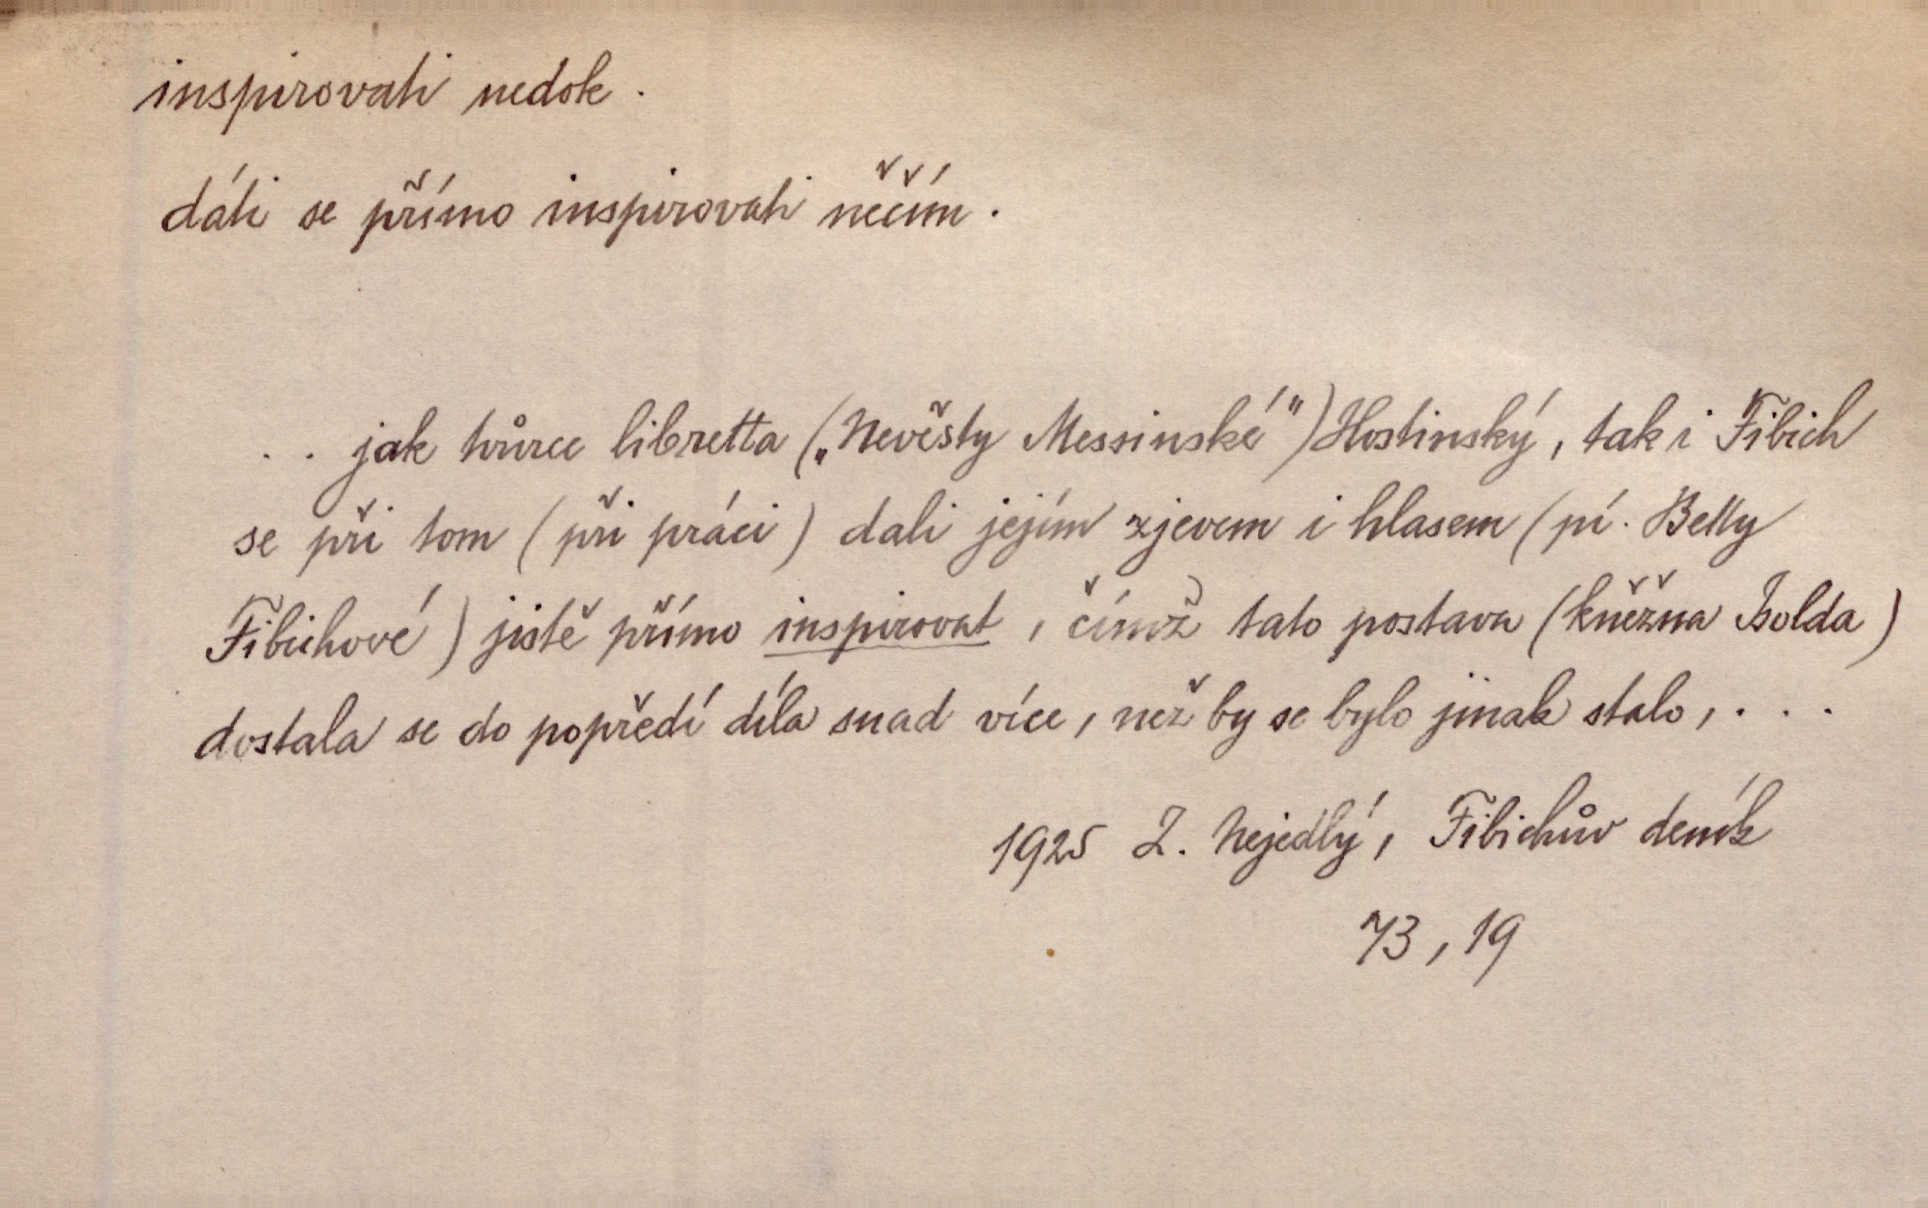 inspirovati nedok.
dáti se přímo inspirovati něčím.
.. jak tvůrce libretta („Nevěsty Messinské") Hostinský, tak i Fibich
se při tom (při práci) dali jejím zjevem i hlasem (pí. Betty
Fibichové) jistě přímo inspirovat, čímž tato postava (kněžna Isolda)
dostala se do popředí díla snad více, než by se bylo jinak stalo, ...
1925 Z. Nejedlý, Fibichův deník
73, 19